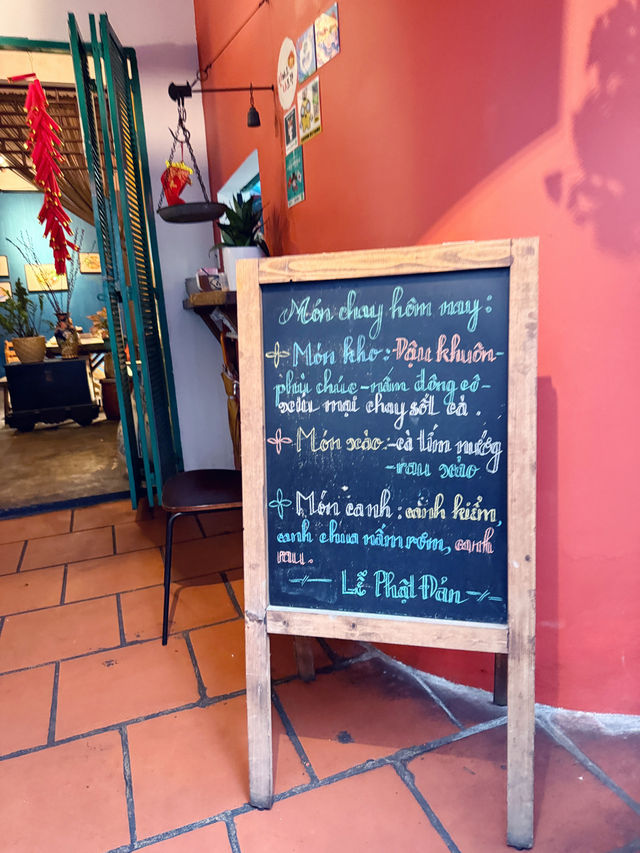 Món chay hôm nay:
Món kho: Đậu khuôn-
phù chúc - nấm đông cô -
xíu mại chay sốt cà.
Món xào: -cà tím nướng
-rau xào
Món canh: canh kiểm,
canh chua nấm rơm, canh
rau.
Lễ Phật Đản